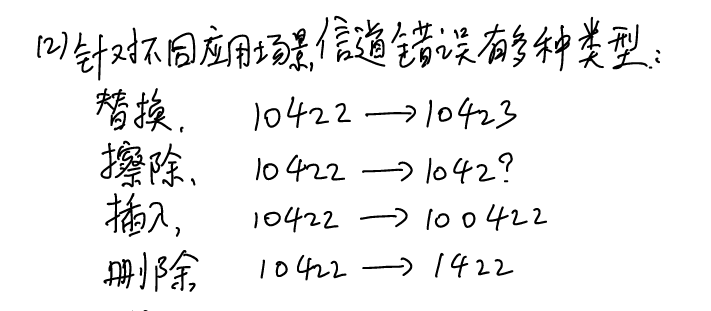 (2)针对不同应用场景,信道错误有多种类型:
替换, 10422 → 10423
擦除、 10422 → 1042?
插入, 10422 → 100422
删除, 10422 → 1422